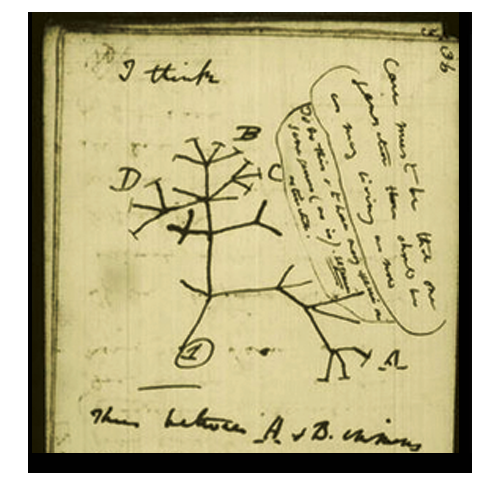 I think
36
B
C
D
A
1
Case must be that one
generation then should be
as many living as now
To do this & to have many species in
same genus (as is). requires
extinction.
Thus between A & B. immens